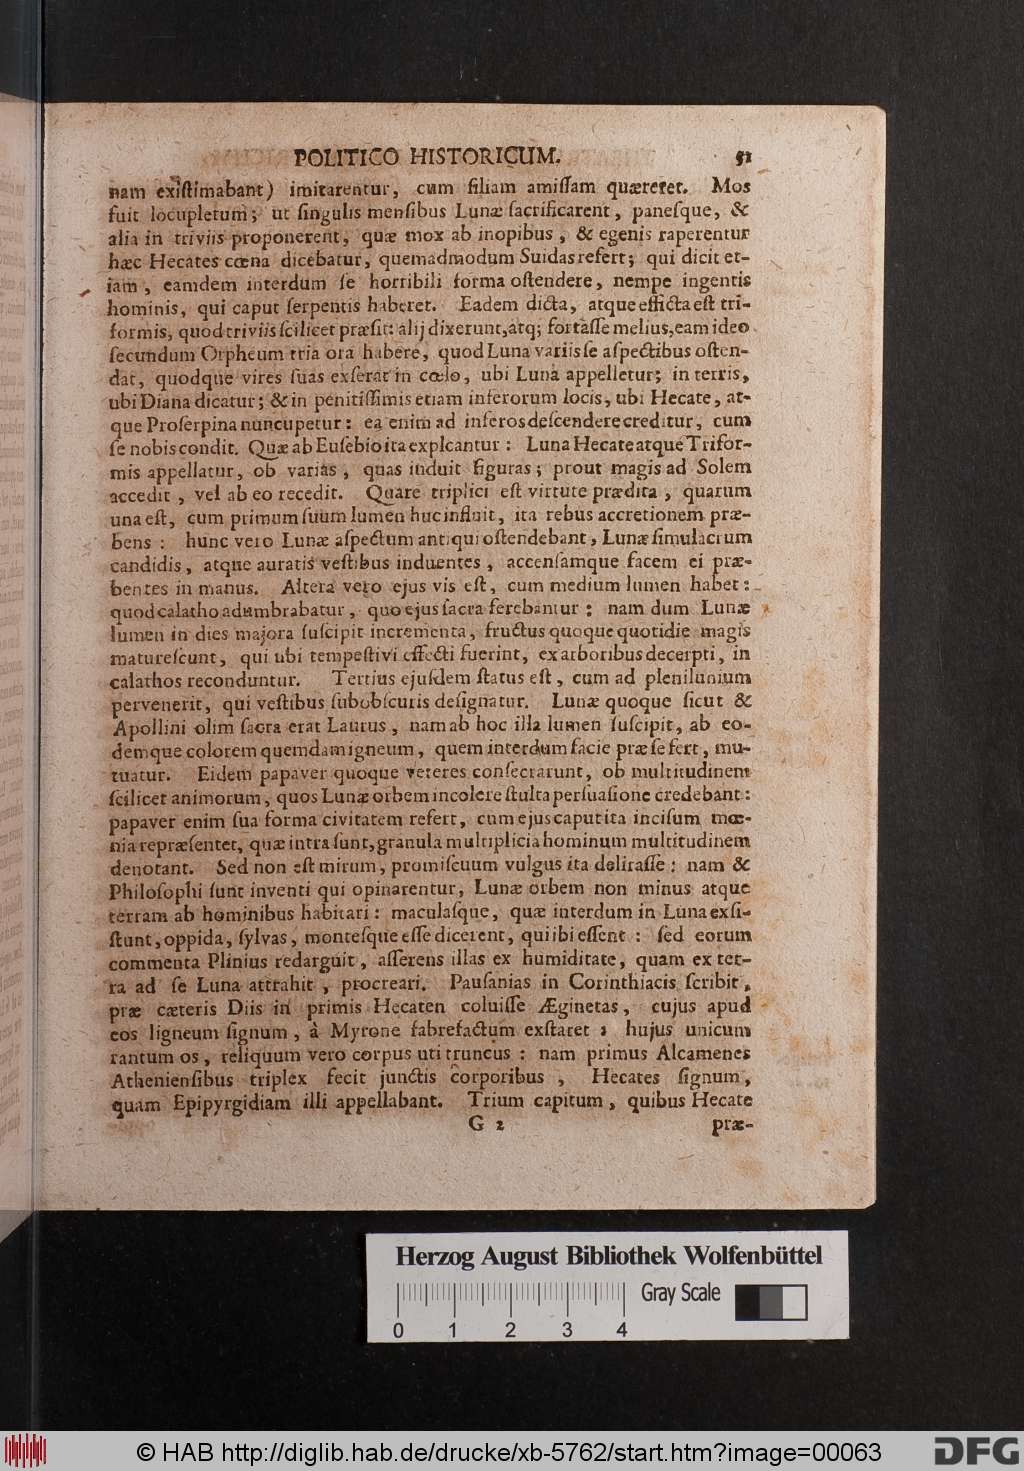 POLITICO HISTORICUM. 51
nam exiſtimabant) imitarentur, cum filiam amiſſam quæreret. Mos
fuit locupletum; ut ſingulis menſibus Lunæ ſacrificarent, paneſque, &
alia in triviis proponerent, quæ mox ab inopibus, & egenis raperentur
hæc Hecates cœna dicebatur, quemadmodum Suidas refert; qui dicit et-
iam, eamdem interdum ſe horribili forma oſtendere, nempe ingentis
hominis, qui caput ſerpentis haberet. Eadem dicta, atque efficta eſt tri-
formis, quod triviis ſcilicet præſit: alij dixerunt, atq; fortaſſe melius, eam ideo
ſecundum Orpheum tria ora habere, quod Luna variis ſe aſpectibus oſten-
dat, quodque vires ſuas exſerat in cœlo, ubi Luna appelletur; in terris,
ubi Diana dicatur; & in penitiſſimis etiam inferorum locis, ubi Hecate, at-
que Proſerpina nuncupetur: ea enim ad inferos deſcendere creditur, cum
ſe nobis condit. Quæ ab Euſebio ita explcantur: Luna Hecate atque Trifor-
mis appellatur, ob varias, quas induit figuras; prout magis ad Solem
accedit, vel ab eo recedit. Quare triplici eſt virtute prædita, quarum
una eſt, cum primum ſuum lumen huc influit, ita rebus accretionem præ-
bens: hunc vero Lunæ aſpectum antiqui oſtendebant, Lunæ ſimulacrum
candidis, atque auratis veſtibus induentes, accenſamque facem ei præ-
bentes in manus. Altera vero ejus vis eſt, cum medium lumen habet:
quod calatho adumbrabatur, quo ejus ſacra ferebantur: nam dum Lunæ
lumen in dies majora ſuſcipit incrementa, fructus quoque quotidie magis
matureſcunt, qui ubi tempeſtivi effecti fuerint, ex arboribus decerpti, in
calathos reconduntur. Tertius ejuſdem ſtatus eſt, cum ad plenilunium
pervenerit, qui veſtibus ſubobſcuris deſignatur. Lunæ quoque ſicut &
Apollini olim ſacra erat Laurus, nam ab hoc illa lumen ſuſcipit, ab eo-
demque colorem quemdam igneum, quem interdum facie præ ſe fert, mu-
tuatur. Eidem papaver quoque veteres conſecrarunt, ob multitudinem
ſcilicet animorum, quos Lunæ orbem incolere ſtulta perſuaſione credebant:
papaver enim ſua forma civitatem refert, cum ejus caput ita inciſum mœ-
nia repræſentet, quæ intra ſunt, granula multiplicia hominum multitudinem
denotant. Sed non eſt mirum, promiſcuum vulgus ita deliraſſe: nam &
Philoſophi ſunt inventi qui opinarentur, Lunæ orbem non minus atque
terram ab hominibus habitari: maculaſque, quæ interdum in Luna exſi-
ſtunt, oppida, ſylvas, monteſque eſſe dicerent, qui ibi eſſent: ſed eorum
commenta Plinius redarguit, aſſerens illas ex humiditate, quam ex ter-
ra ad ſe Luna attrahit, procreari. Pauſanias in Corinthiacis ſcribit,
præ cæteris Diis in primis Hecaten coluiſſe Æginetas, cujus apud
eos ligneum ſignum, à Myrone fabrefactum exſtaret: hujus unicum
tantum os, reliquum vero corpus uti truncus: nam primus Alcamenes
Athenienſibus triplex fecit junctis corporibus, Hecates ſignum,
quam Epipyrgidiam illi appellabant. Trium capitum, quibus Hecate
G 2 præ-
Herzog August Bibliothek Wolfenbüttel
Gray Scale
0 1 2 3 4
© HAB http://diglib.hab.de/drucke/xb-5762/start.htm?image=00063
DFG